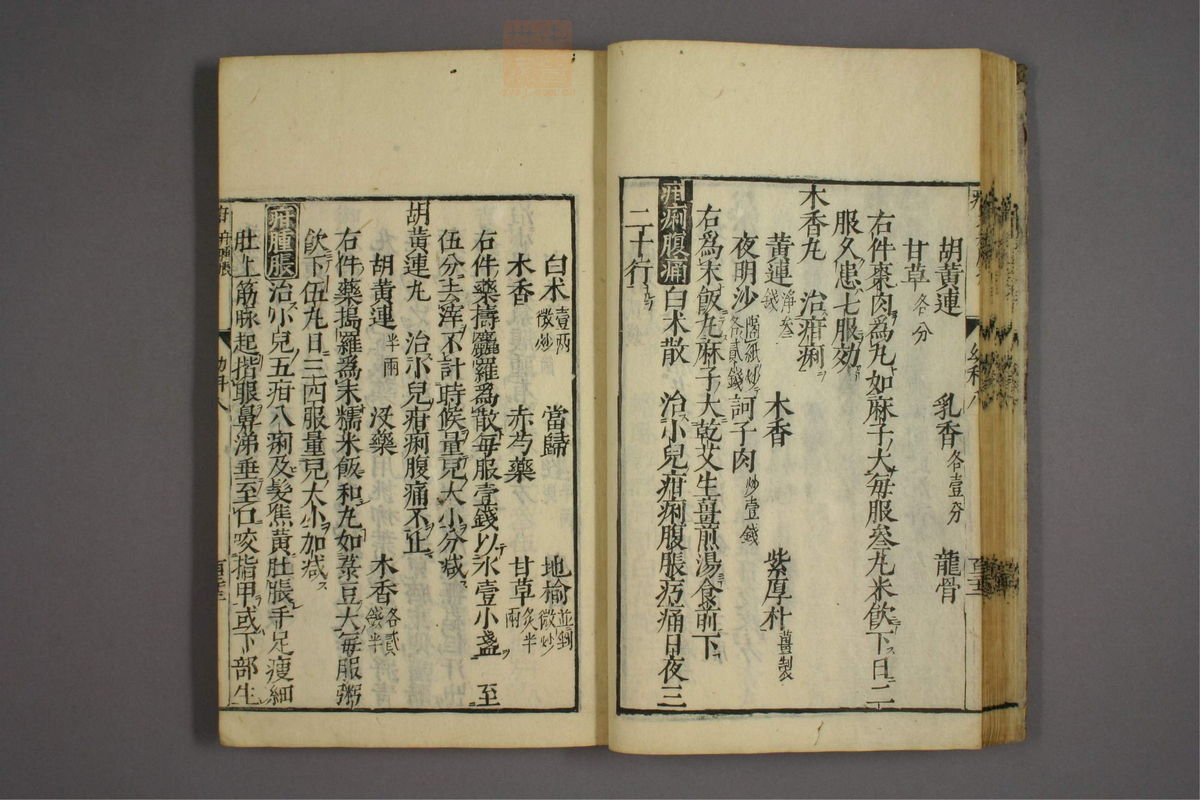 胡黃連 乳香各壹分 龍骨
甘草各分
右件棗肉爲丸如麻子大每服叄丸米飲下日二
服久患七服効
木香丸 治疳痢
黃連淨叄錢 木香 紫厚朴薑製
夜明沙隔紙炒各貳錢 訶子肉炒壹錢
右爲末飯丸麻子大乾艾生薑煎湯食前下
疳痢腹痛 白术散 治小兒疳痢腹脹㽲痛日夜三
二十行
白术壹兩微炒 當歸 地榆並剉微炒
木香 赤芍藥 甘草炙半兩
右件藥擣麤羅爲散每服壹錢以水壹小盞至
伍分去滓不計時候量兒大小分減
胡黃連丸 治小兒疳痢腹痛不止
胡黃連半兩 沒藥 木香各貳錢半
右件藥搗羅爲末糯米飯和丸如菉豆大每服粥
飲下伍丸日三四服量兒大小加減
疳腫脹 治小兒五疳八痢及髮焦黃肚脹手足瘦細
肚上筋脉起揩眼鼻涕垂至口咬指甲或下部生
幼科八